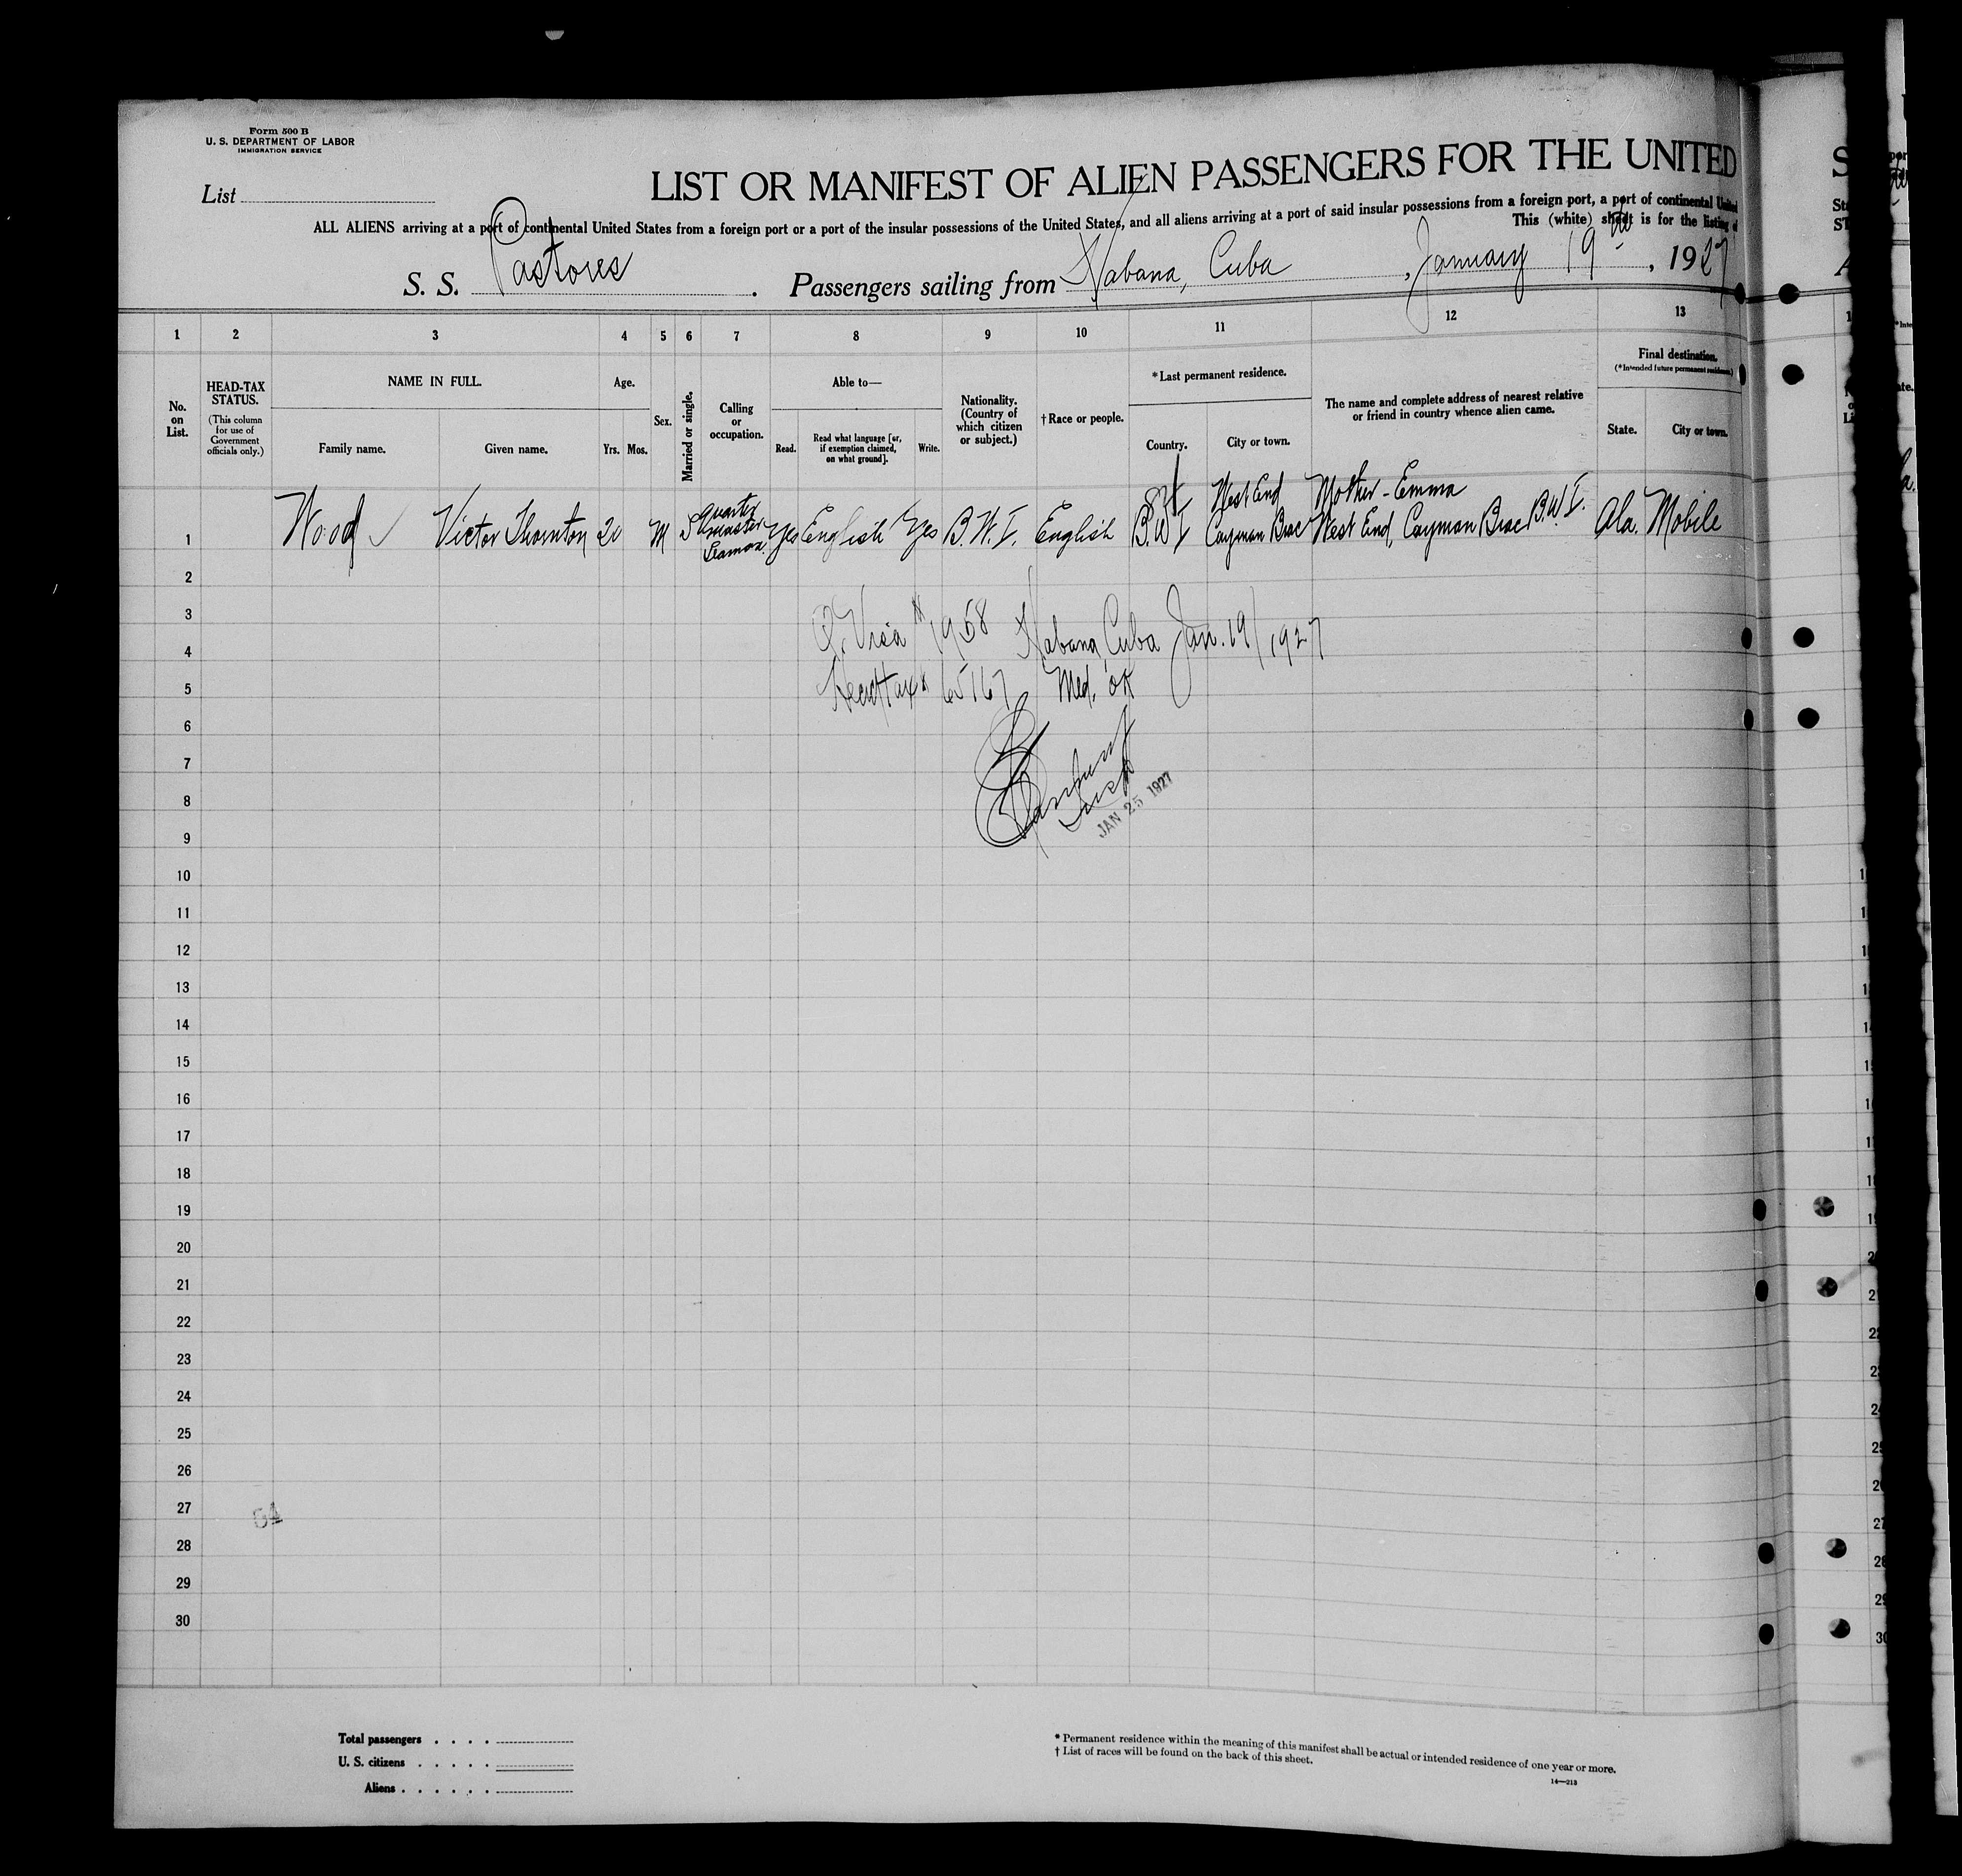 Form 500 B
U. S. DEPARTMENT OF LABOR
IMMIGRATION SERVICE
List
LIST OR MANIFEST OF ALIEN PASSENGERS FOR THE UNITED
ALL ALIENS arriving at a port of continental United States from a foreign port or a port of the insular possessions of the United States, and all aliens arriving at a port of said insular possessions from a foreign port, a port of continental United
This (white) sheet is for the listing of
S. S. Pastores. Passengers sailing from Habana, Cuba, January 19th, 1927
1 2 3 4 5 6 7 8 9 10 11 12 13
No. on List.
HEAD-TAX STATUS.
(This column for use of Government officials only.)
NAME IN FULL.
Family name. Given name.
Age.
Yrs. Mos.
Sex.
Married or single.
Calling or occupation.
Able to—
Read. Read what language [or, if exemption claimed, on what ground]. Write.
Nationality. (Country of which citizen or subject.)
†Race or people.
*Last permanent residence.
Country. City or town.
The name and complete address of nearest relative or friend in country whence alien came.
Final destination.
(*Intended future permanent residence.)
State. City or town.
1 Wood Victor Thornton 20 M S Quarter master Seaman Yes English Yes B.W.I. English B.W.I. West End Cayman Brac Mother - Emma West End, Cayman Brac B.W.I. Ala. Mobile
2
3
Q. Visa # 1958 Habana, Cuba Jan. 19/1927
4
5
Headtax # 65167 Med. OK
6
7
8
JAN 25 1927
9
10
11
12
13
14
15
16
17
18
19
20
21
22
23
24
25
26
27
54
28
29
30
Total passengers
U. S. citizens
Aliens
* Permanent residence within the meaning of this manifest shall be actual or intended residence of one year or more.
† List of races will be found on the back of this sheet.
14—213